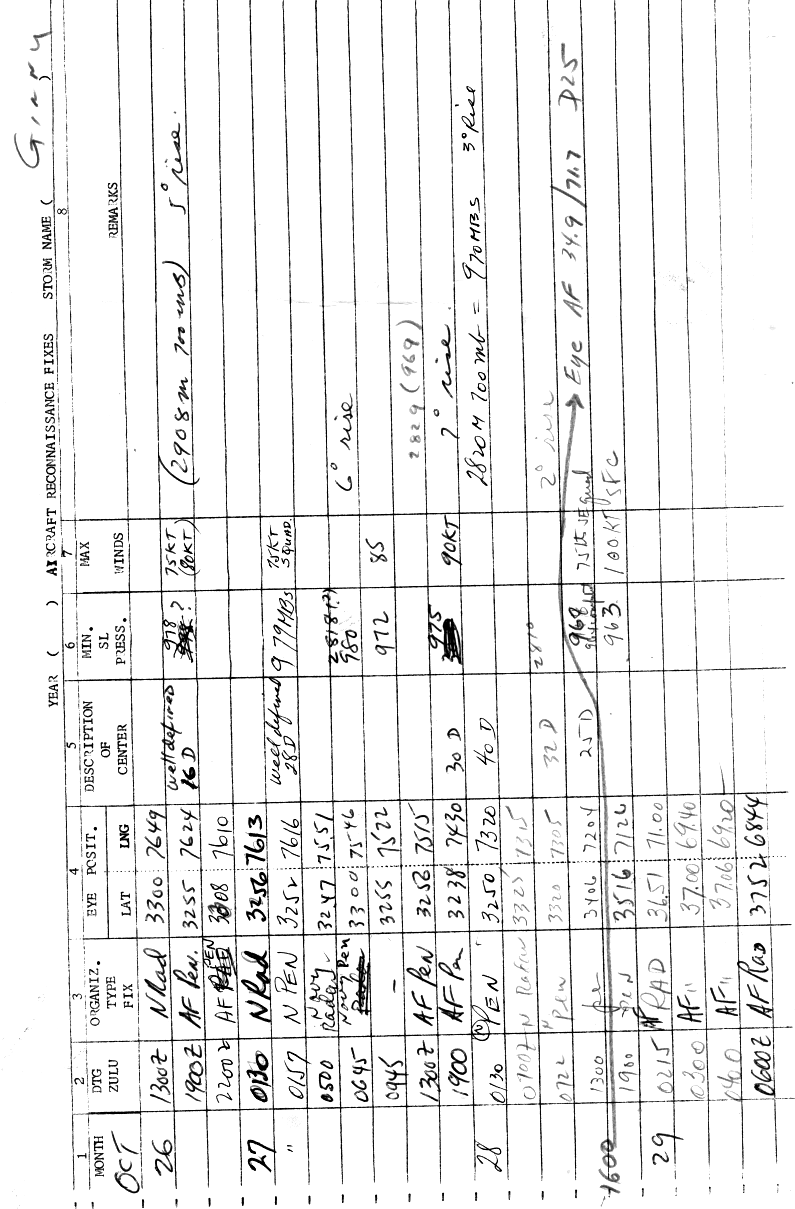 YEAR ( ) AIRCRAFT RECONNAISSANCE FIXES STORM NAME ( Ginny )
1 2 3 4 5 6 7 8
MONTH DTG ZULU ORGANIZ. TYPE FIX EYE POSIT. LAT LNG DESCRIPTION OF CENTER MIN. SL PRESS. MAX WINDS REMARKS
OCT
26 1300Z N Rad 3300 7649
1900Z AF Pen. 3255 7624 well defined 16 D 978 ? 75KT (80KT) (2908m 700 mb) 5° rise.
2200Z AF PEN 3308 7610
27 0130 N Rad 3256 7613
" 0157 N PEN 3252 7616 well defined 28D 979 MBS 75KT S QUAD.
0500 Navy Radar 3247 7551 2818(?)
0645 Navy Pen 3300 7546 980 6° rise
0945 - 3255 7522 972 85
1300Z AF Pen 3256 7515 2829 (969)
1900 AF Pen 3238 7430 30 D 975 90KT 7° rise.
28 0130 N PEN 3250 7320 40 D 2820 M 700 mb = 970 MBS 3° Rise
0700Z N 3325 7315
0722 " Pen 3320 7305 32 D 2810 2° rise
1300 Pen 3406 7204 25 D 968 75 kt SE quad
1600 Eye AF 34.9 / 71.7 D25
1900 PEN 3516 7126 963 100KT SFC
29 0215 AF RAD 36.51 71.00
0300 AF " 37.00 69.40
0400 AF " 37.06 69.20
0600Z AF Rad 3752 6844